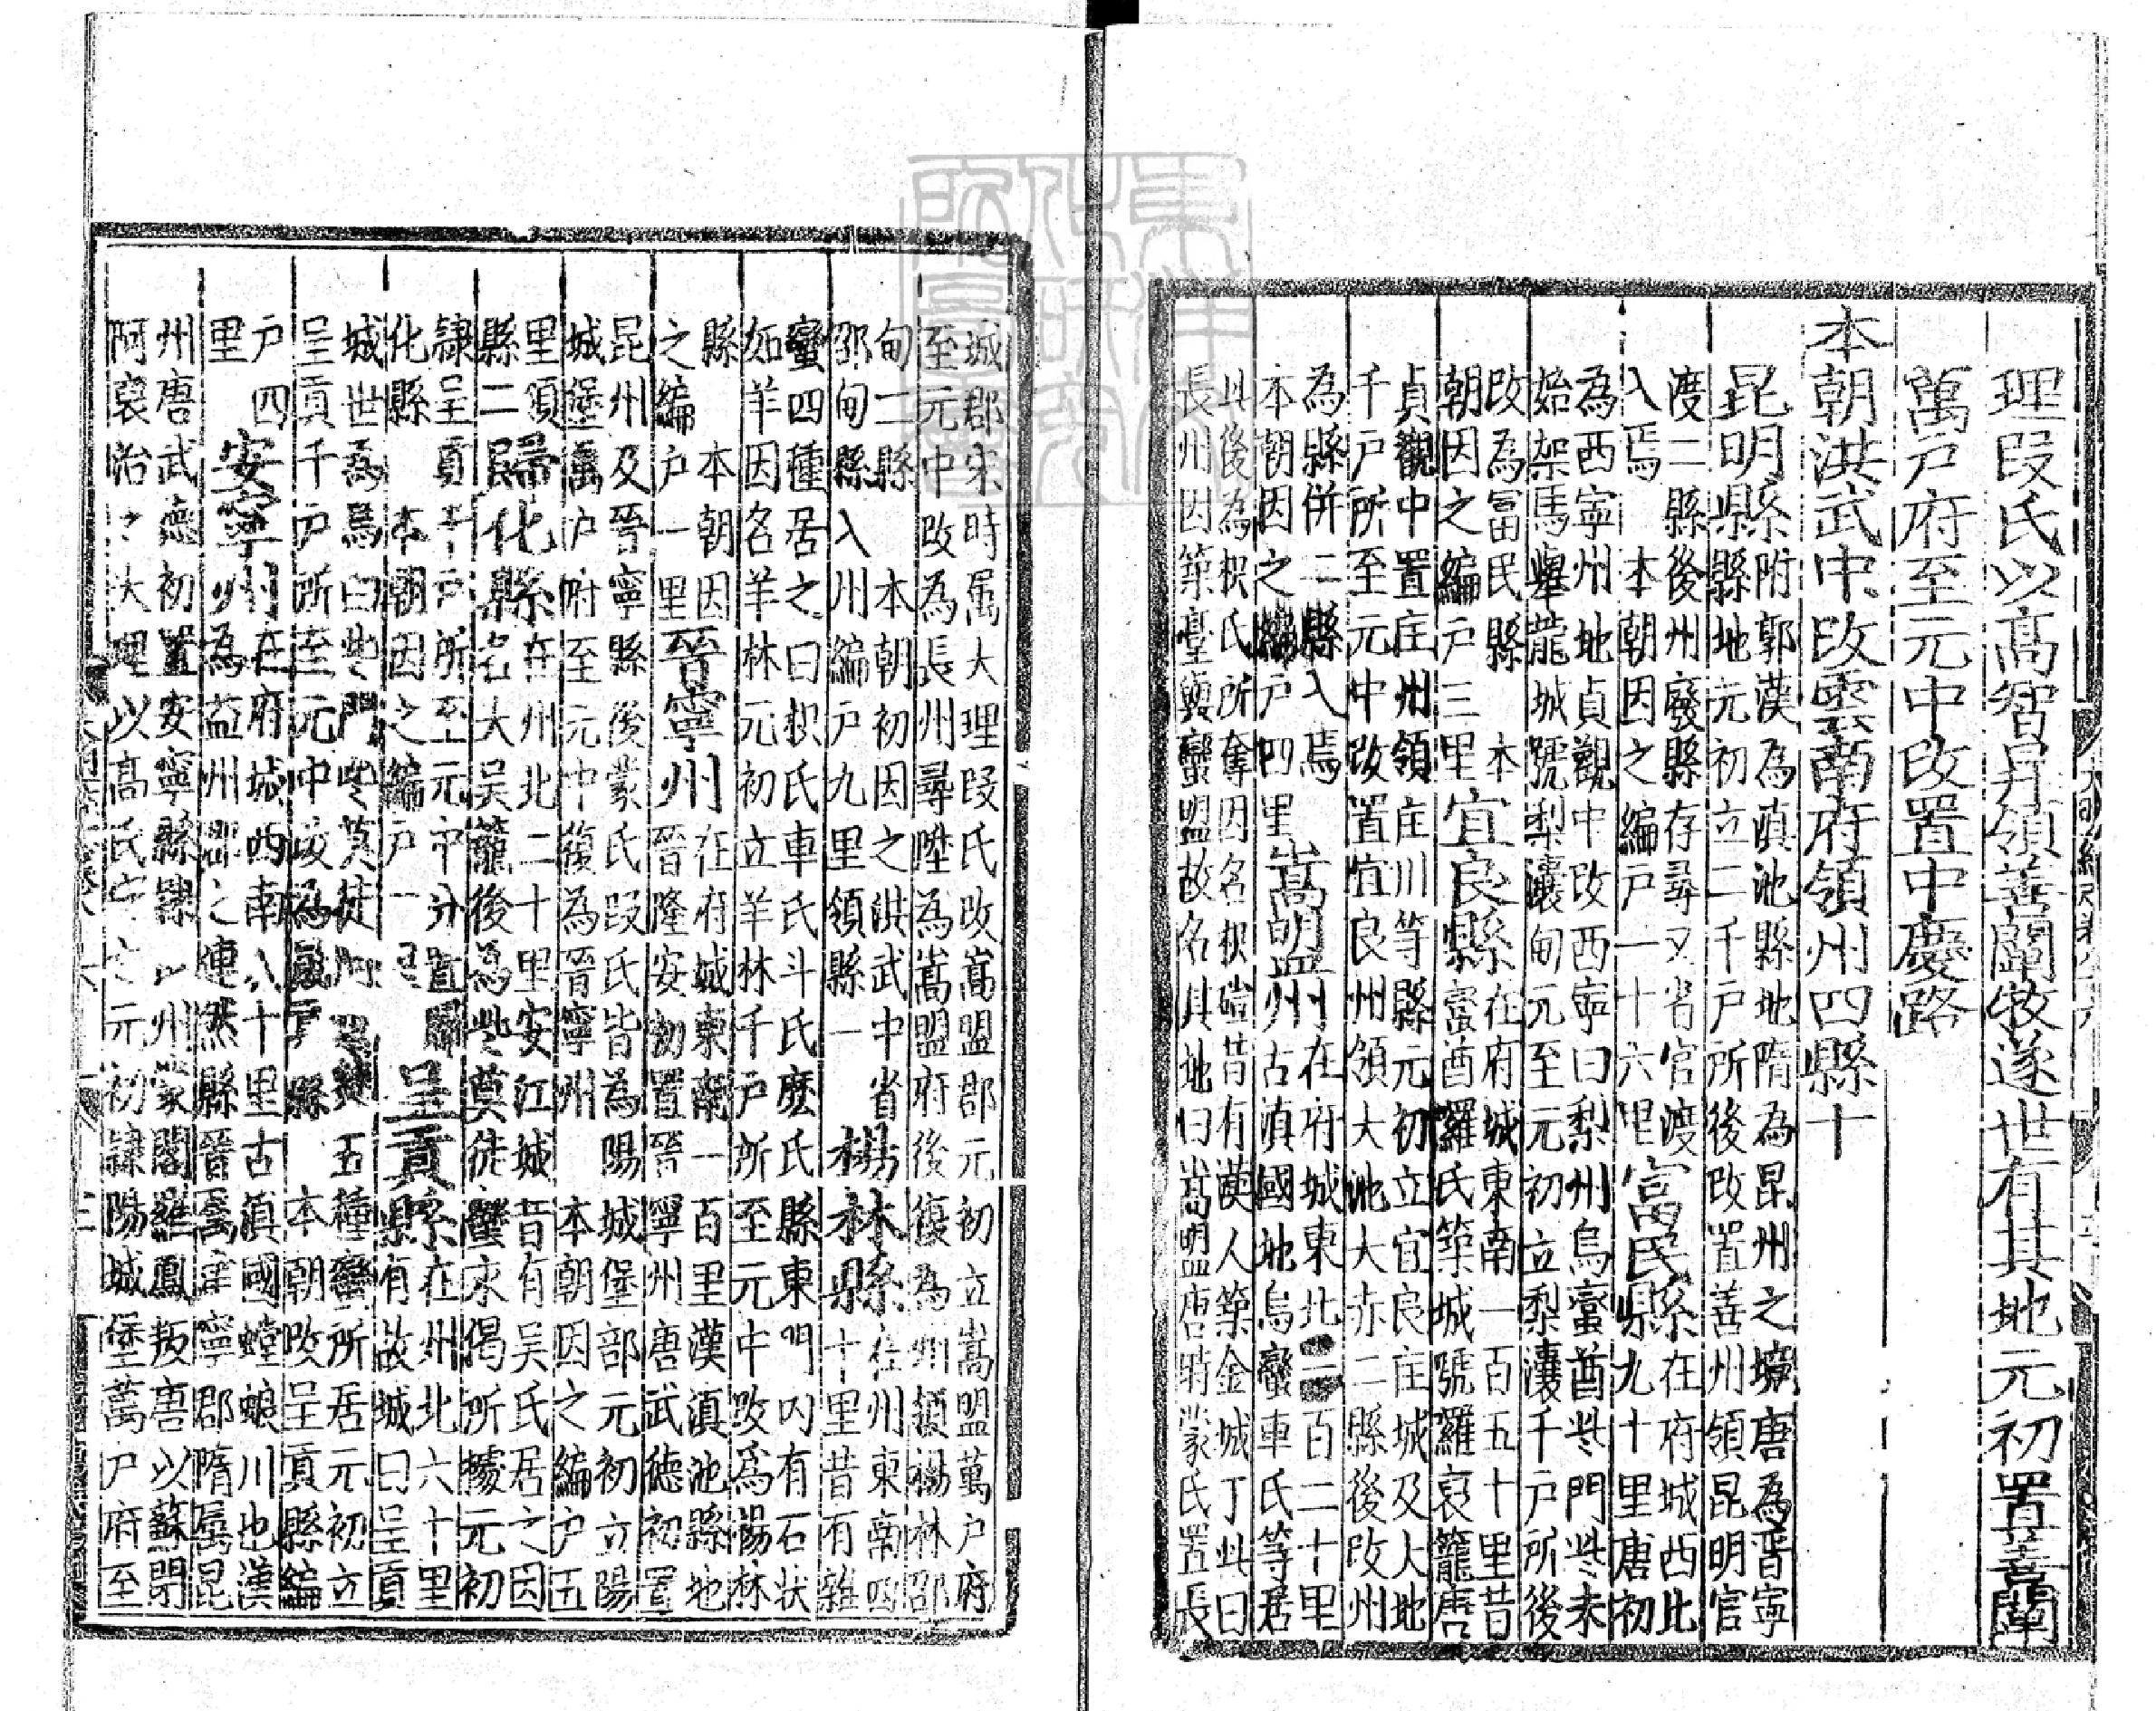 理段氏以高智昇領善闡牧遂世有其地元初置善闡
萬户府至元中改置中慶路
本朝洪武中改雲南府領州四縣十
昆明縣附郭漢為滇池縣地隋為昆州之境唐為晋寧
縣地元初立二千户所後改置善州領昆明官
渡二縣後州廢縣存尋又省官渡
入焉 本朝因之編户一十六里富民縣在府城西北
九十里唐初
為西寧州地貞觀中改西寧曰梨州烏蠻酋些門些末
始架馬舉龍城號梨瀼甸元至元初立梨瀼千户所後
改為富民縣 本
朝因之編户三里宜良縣在府城東南一百五十里昔
蠻酋羅氏築城號羅裒籠唐
貞觀中置庄州領庄川等縣元初立宜良庄城及大地
千户所至元中改置宜良州領大池大赤二縣後改州
為縣併二縣入焉
本朝因之編户四里嵩盟州在府城東北一百二十里
古滇國地烏蠻車氏等居
此後為枳氏所奪因名枳磴昔有漢人築金城丁此曰
長州因築臺與蠻盟故名其地曰嵩盟唐時蒙氏置長
城郡宋時属大理段氏改嵩盟郡元初立嵩盟萬户府
至元中改為長州尋陞為嵩盟府後復為州領楊林邵
甸二縣 本朝初因之洪武中省
邵甸縣入州編户九里領縣一 楊林縣在州東南四
十里昔有雜
蠻四種居之曰枳氏車氏斗氏麽氏縣東門内有石状
如羊因名羊林元初立羊林千户所至元中改為楊林
縣 本朝因
之編户一里晉寧州在府城東南一百里漢滇池縣地
晋隆安初置晉寧州唐武德初置
昆州及晉寧縣後蒙氏段氏皆為陽城堡部元初立陽
城堡萬户府至元中復為晋寧州 本朝因之編户五
里領
縣二歸化縣在州北二十里安江城昔有吴氏居之因
名大吴籠後為些莫徒蠻永偈所據元初
隷呈貢千户所至元中分置歸
化縣 本朝因之編户一里 呈貢縣在州北六十里
有故城曰呈貢
城世為烏白些門些莫徒 五種蠻所居元初立
呈貢千户所至元中改為 縣 本朝改呈貢縣編
户四
里 安寧州在府城西南八十里古滇國螳螂川也漢
為益州郡之連然縣晉為建寧郡隋属昆
州唐武德初置安寧縣隷 州蒙閣羅鳳叛唐以蘇閉
阿裒治之大理以高氏守之元初隷陽城堡萬户府至